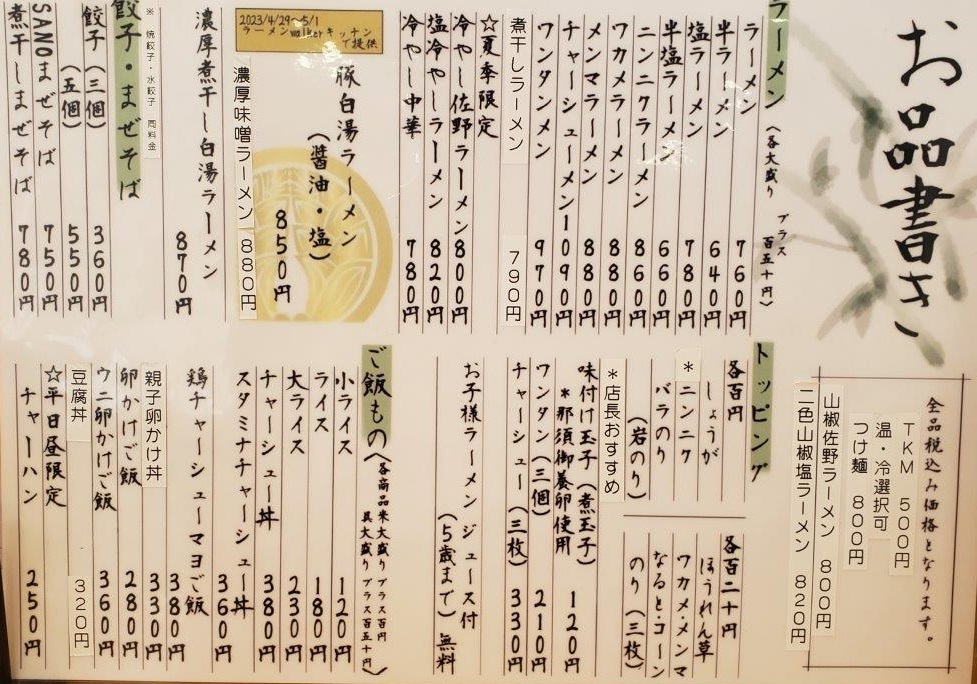 お品書き
ラーメン（各大盛り プラス 百五十円）
ラーメン 760円
半ラーメン 640円
塩ラーメン 780円
半塩ラーメン 660円
ニンニクラーメン 860円
ワカメラーメン 880円
メンマラーメン 880円
チャーシューメン 1090円
ワンタンメン 970円
煮干しラーメン 790円
☆夏季限定
冷やし佐野ラーメン 800円
塩冷やしラーメン 820円
冷やし中華 780円
2023/4/29〜5/1
ラーメンwalkerキッチン
で提供
豚白湯ラーメン
（醤油・塩）
850円
濃厚味噌ラーメン 880円
濃厚煮干し白湯ラーメン
870円
※ 焼餃子・水餃子 同料金
餃子・まぜそば
餃子（三個） 360円
（五個） 550円
SANOまぜそば 750円
煮干しまぜそば 780円
全品税込み価格となります。
TKM 500円
温・冷選択可
つけ麺 800円
山椒佐野ラーメン 800円
二色山椒塩ラーメン 820円
トッピング
各百円
しょうが
*ニンニク
バラのり
（岩のり）
*店長おすすめ
各百二十円
ほうれん草
ワカメ・メンマ
なると・コーン
のり（三枚）
味付け玉子（煮玉子） 120円
*那須御養卵使用
ワンタン（三個） 210円
チャーシュー（三枚） 330円
お子様ラーメン ジュース付
（5歳まで）無料
ご飯もの（各商品米大盛り プラス百円
具大盛り プラス百五十円）
小ライス 120円
ライス 180円
大ライス 230円
チャーシュー丼 380円
スタミナチャーシュー丼
360円
鶏チャーシューマヨご飯
380円
親子卵かけ丼 330円
卵かけご飯 280円
ウニ卵かけご飯 360円
豆腐丼 320円
☆平日昼限定
チャーハン 250円